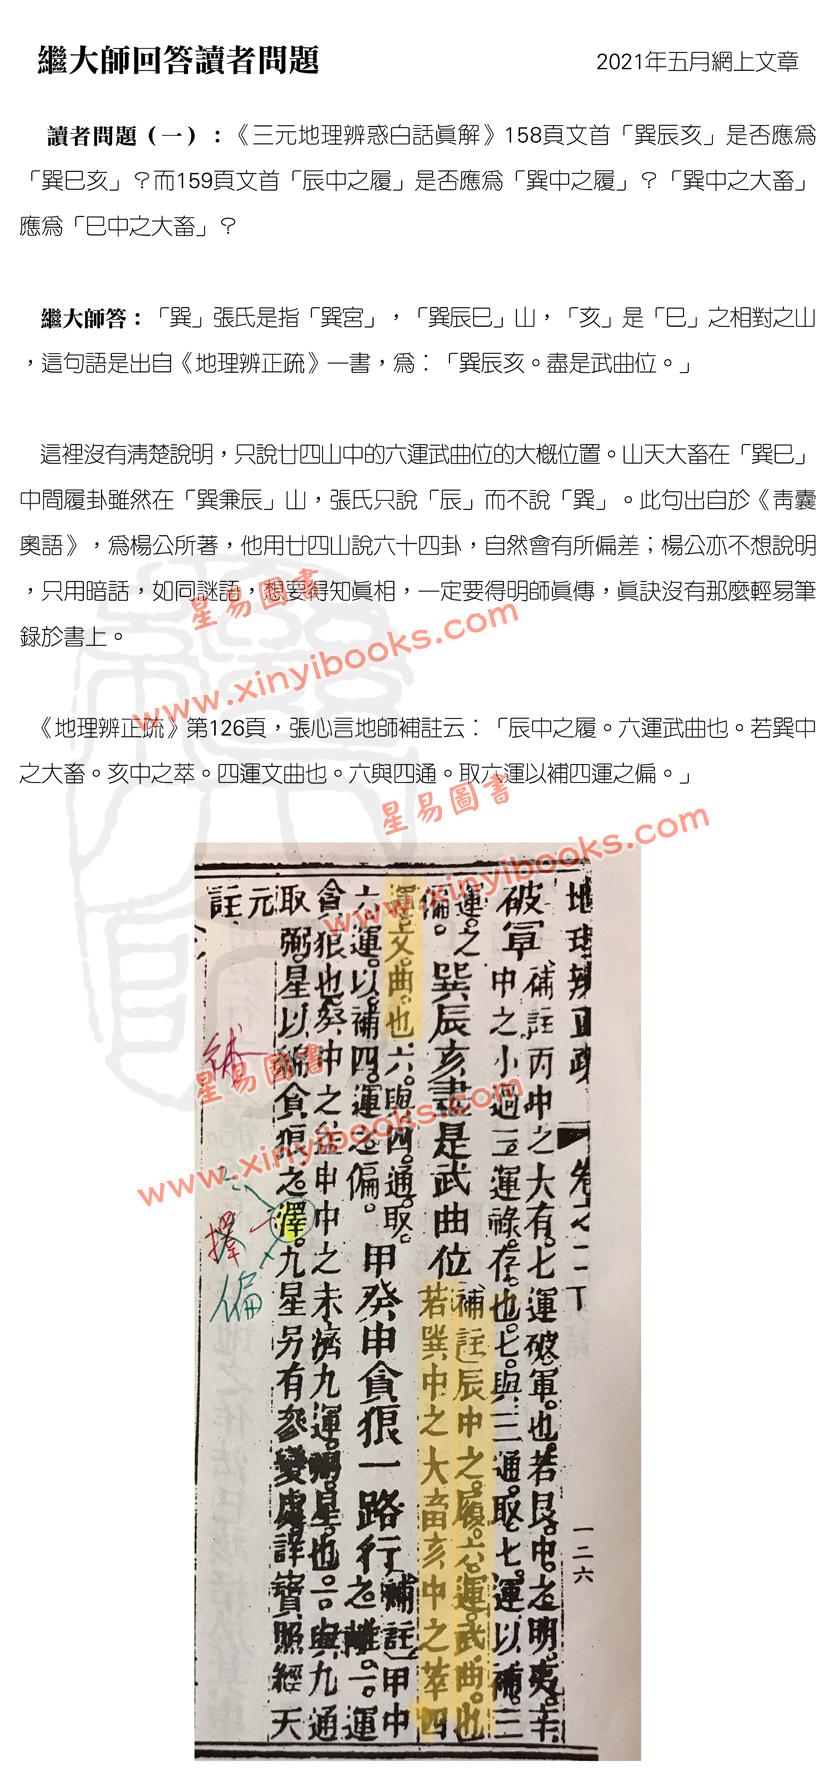 繼大師回答讀者問題
2021年五月網上文章
讀者問題（一）：《三元地理辨惑白話眞解》158頁文首「巽辰亥」是否應為
「巽巳亥」？而159頁文首「辰中之履」是否應為「巽中之履」？「巽中之大畜」
應為「巳中之大畜」？
繼大師答：「巽」張氏是指「巽宮」，「巽辰巳」山，「亥」是「巳」之相對之山
，這句語是出自《地理辨正疏》一書，為：「巽辰亥。盡是武曲位。」
這裡沒有清楚說明，只說廿四山中的六運武曲位的大概位置。山天大畜在「巽巳」
中間履卦雖然在「巽兼辰」山，張氏只說「辰」而不說「巽」。此句出自於《青囊
奧語》，為楊公所著，他用廿四山說六十四卦，自然會有所偏差；楊公亦不想說明
，只用暗話，如同謎語，想要得知眞相，一定要得明師眞傳，眞訣沒有那麼輕易筆
錄於書上。
《地理辨正疏》第126頁，張心言地師補註云：「辰中之履。六運武曲也。若巽中
之大畜。亥中之萃。四運文曲也。六與四通。取六運以補四運之偏。」
星易圖書
www.xinyibooks.com
星易圖書
www.xinyibooks.com
星易圖書
www.xinyibooks.com
地理辨正疏 卷之二下 一二六
破軍
補註丙中之大有。七運破軍。也。若艮。中。之明。夷。丰
中之小過三運祿。存。也。七。與三通。取七。運以補。三
運。之
偏。
巽辰亥盡是武曲位
補註辰中之。履。六。運。武。曲。也
若巽中之大畜亥中之萃四
運。文。曲。也六。與。四。通。取。
六。運。以。補。四。運。之。偏。
甲癸申貪狼一路行
補註甲中
之離。一。運
貪狼也。癸中之益申中之未濟九運。弼。星。也。一。與九通
取弼。星以貪狼之。澤。九星另有參變處詳寶照經天
元
註
偏